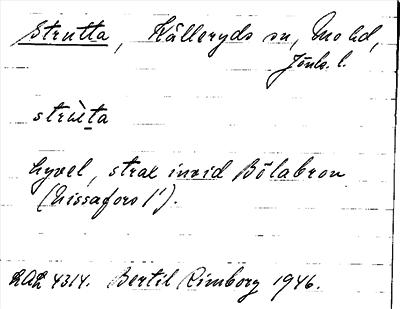 Strutta, Källeryds sn, Mo hd,
Jönk. l.
strùta
hyvel, strax invid Bölabron
(Nissafors 1').
RAÄ 4314. Bertil Rimborg 1946.